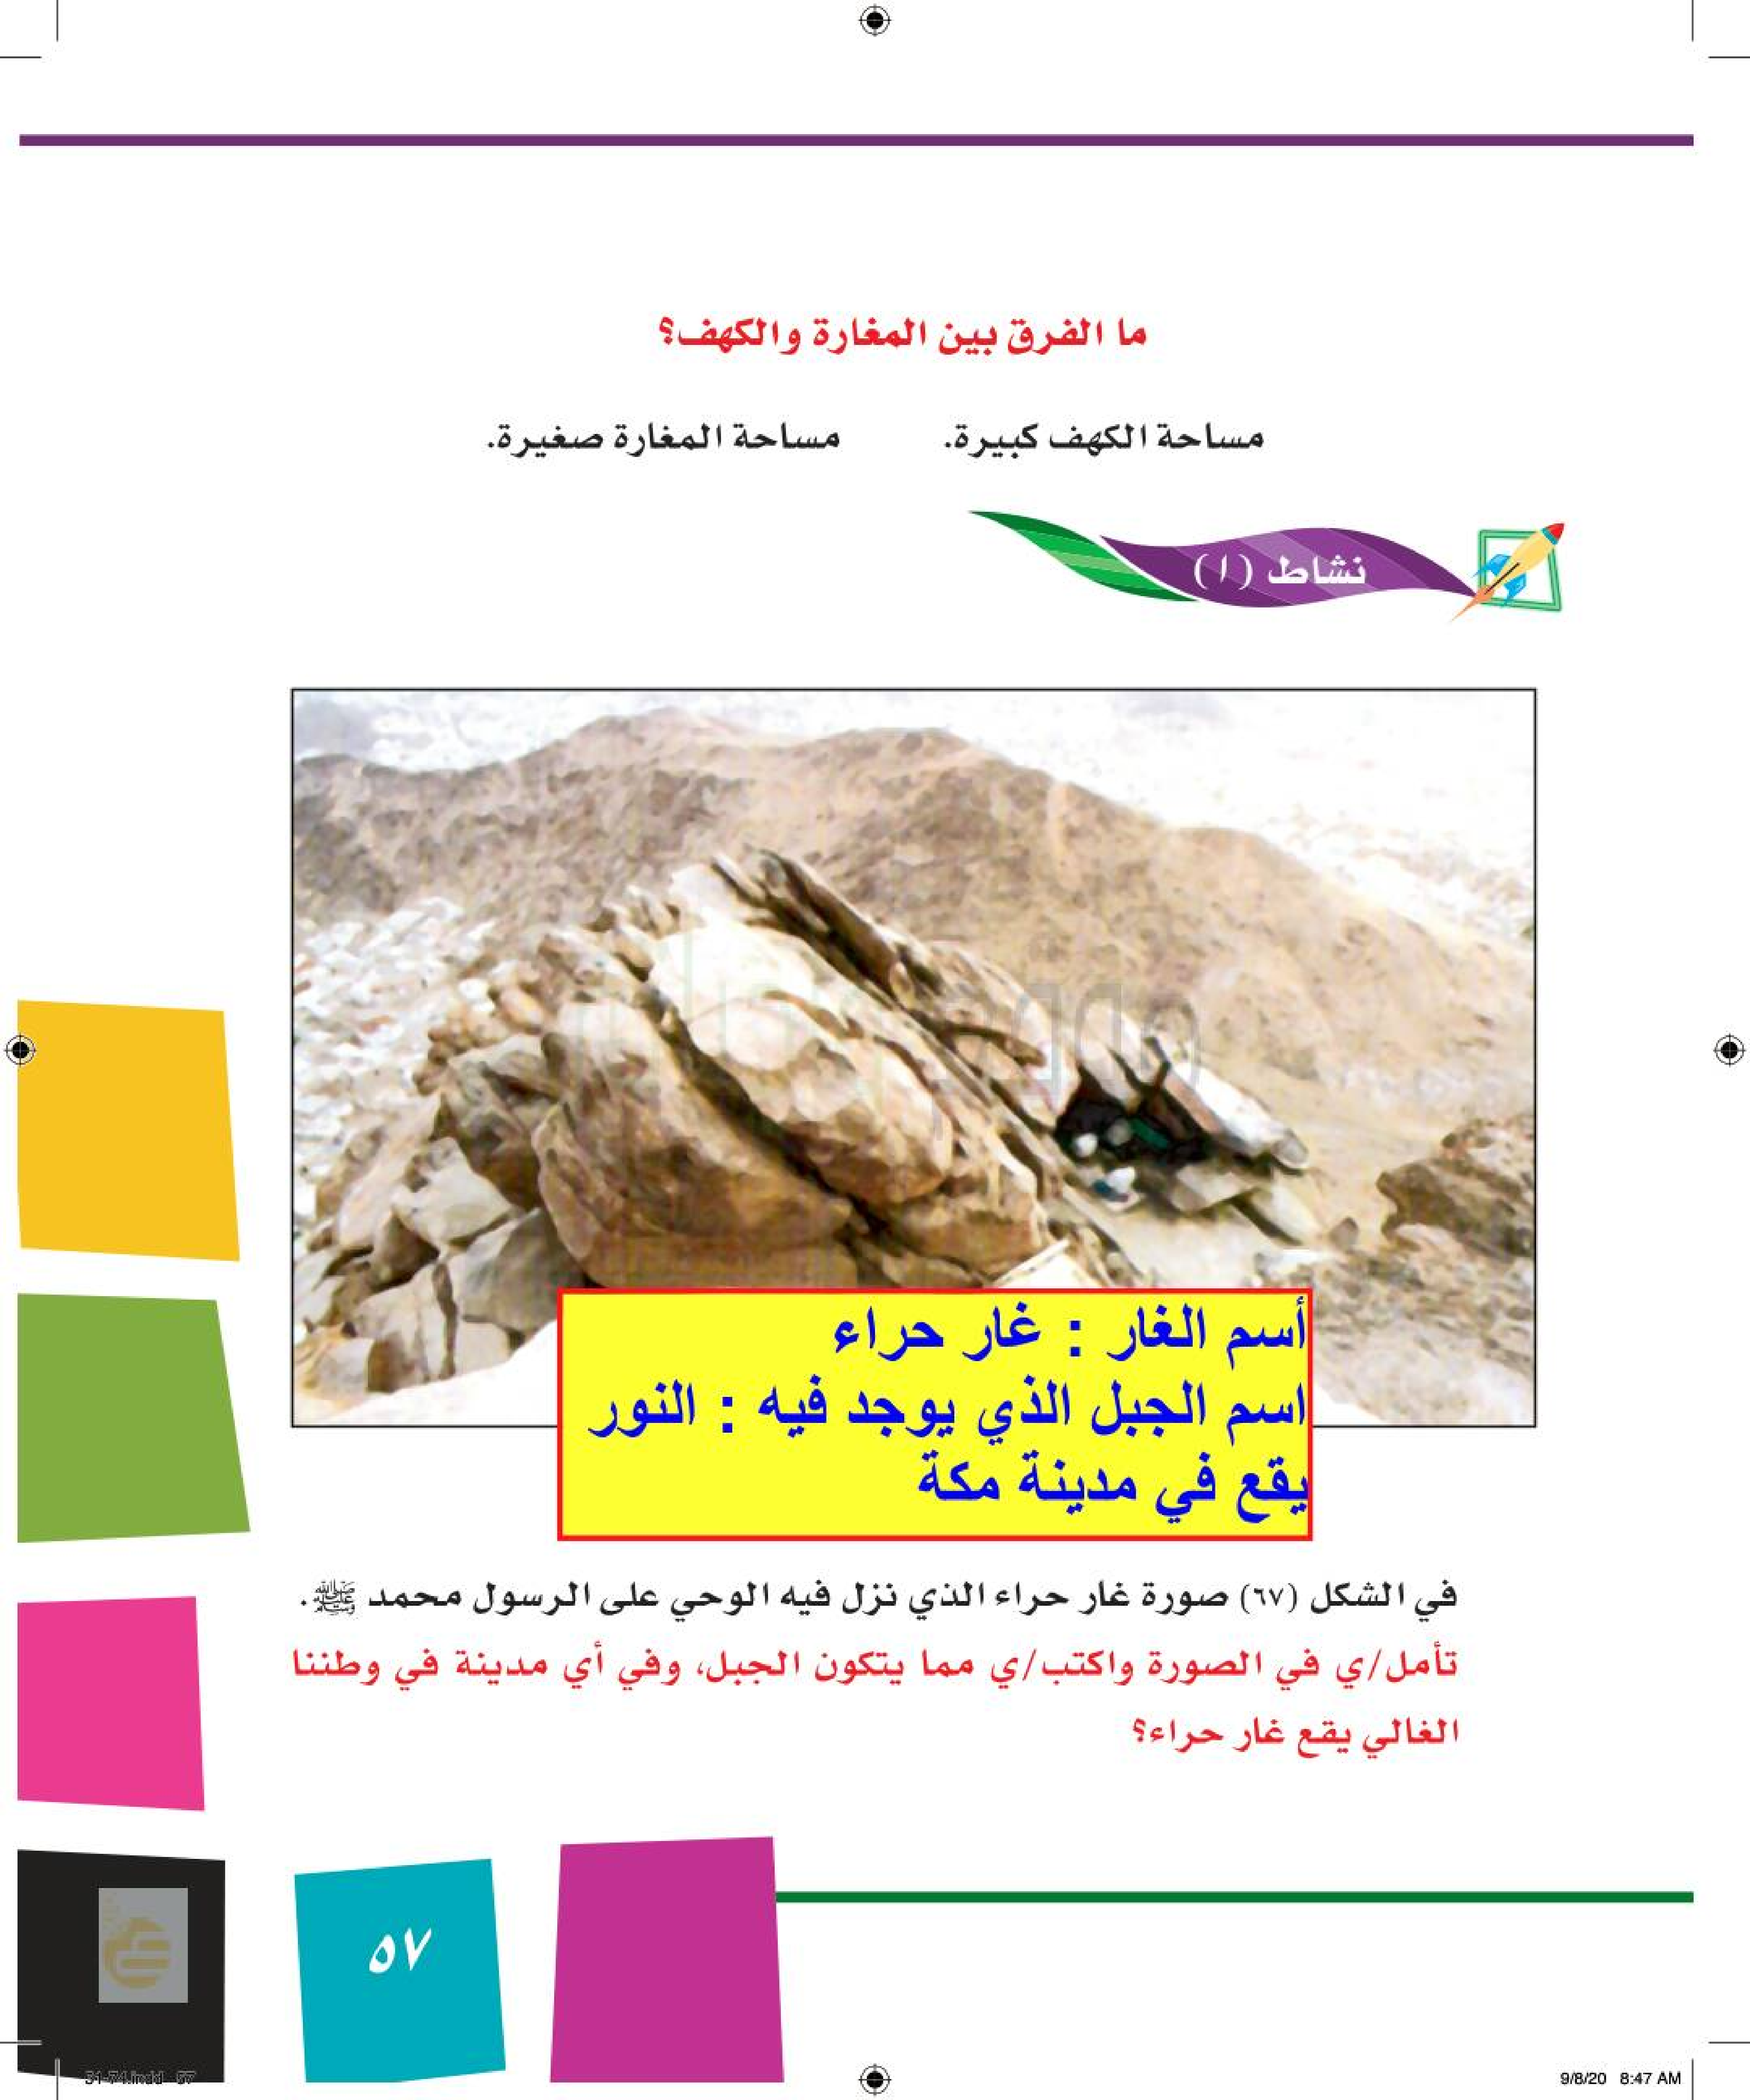 ما الفرق بين المغارة والكهف؟
مساحة الكهف كبيرة. مساحة المغارة صغيرة.
نشاط (١)
أسم الغار : غار حراء
اسم الجبل الذي يوجد فيه : النور
يقع في مدينة مكة
في الشكل (٦٧) صورة غار حراء الذي نزل فيه الوحي على الرسول محمد ﷺ.
تأمل/ي في الصورة واكتب/ي مما يتكون الجبل، وفي أي مدينة في وطننا
الغالي يقع غار حراء؟
٥٧
51-74.indd 57
9/8/20 8:47 AM